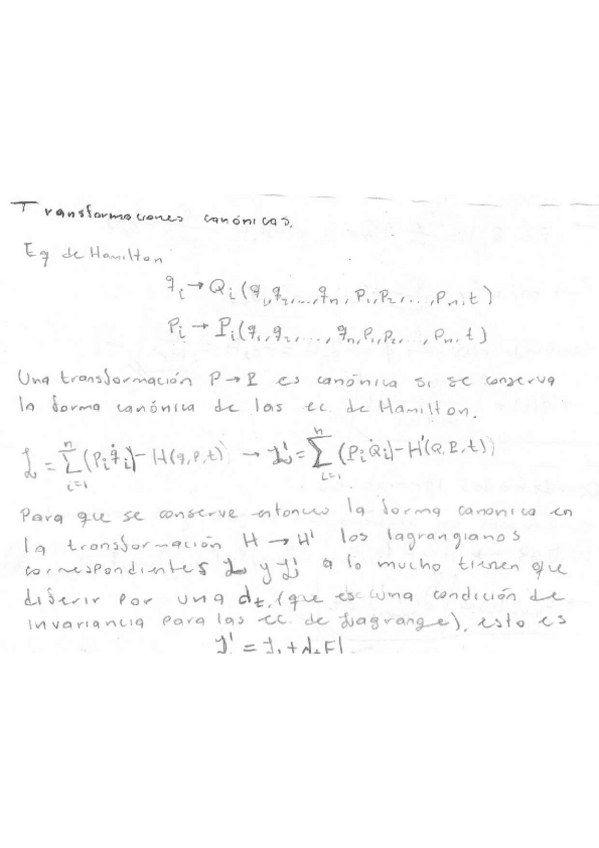 Transformaciones canónicas.
Eq de Hamilton
q_i → Q_i (q_1, q_2, ..., q_n, P_1, P_2, ..., P_n, t)
P_i → P_i (q_1, q_2, ..., q_n, P_1, P_2, ..., P_n, t)
Una transformación P → P es canónica si se conserva
la forma canónica de las ec. de Hamilton.
L = Σ_{i=1}^{n} (P_i q̇_i) - H(q, P, t) → L' = Σ_{i=1}^{n} (P_i Q̇_i) - H'(Q, P, t)
Para que se conserve entonces la forma canonica en
la transformación H → H' los lagrangianos
correspondientes L y L' a lo mucho tienen que
diferir por una d_t, (que es una condición de
invariancia para las ec. de Lagrange), esto es
L' = L + d_t F